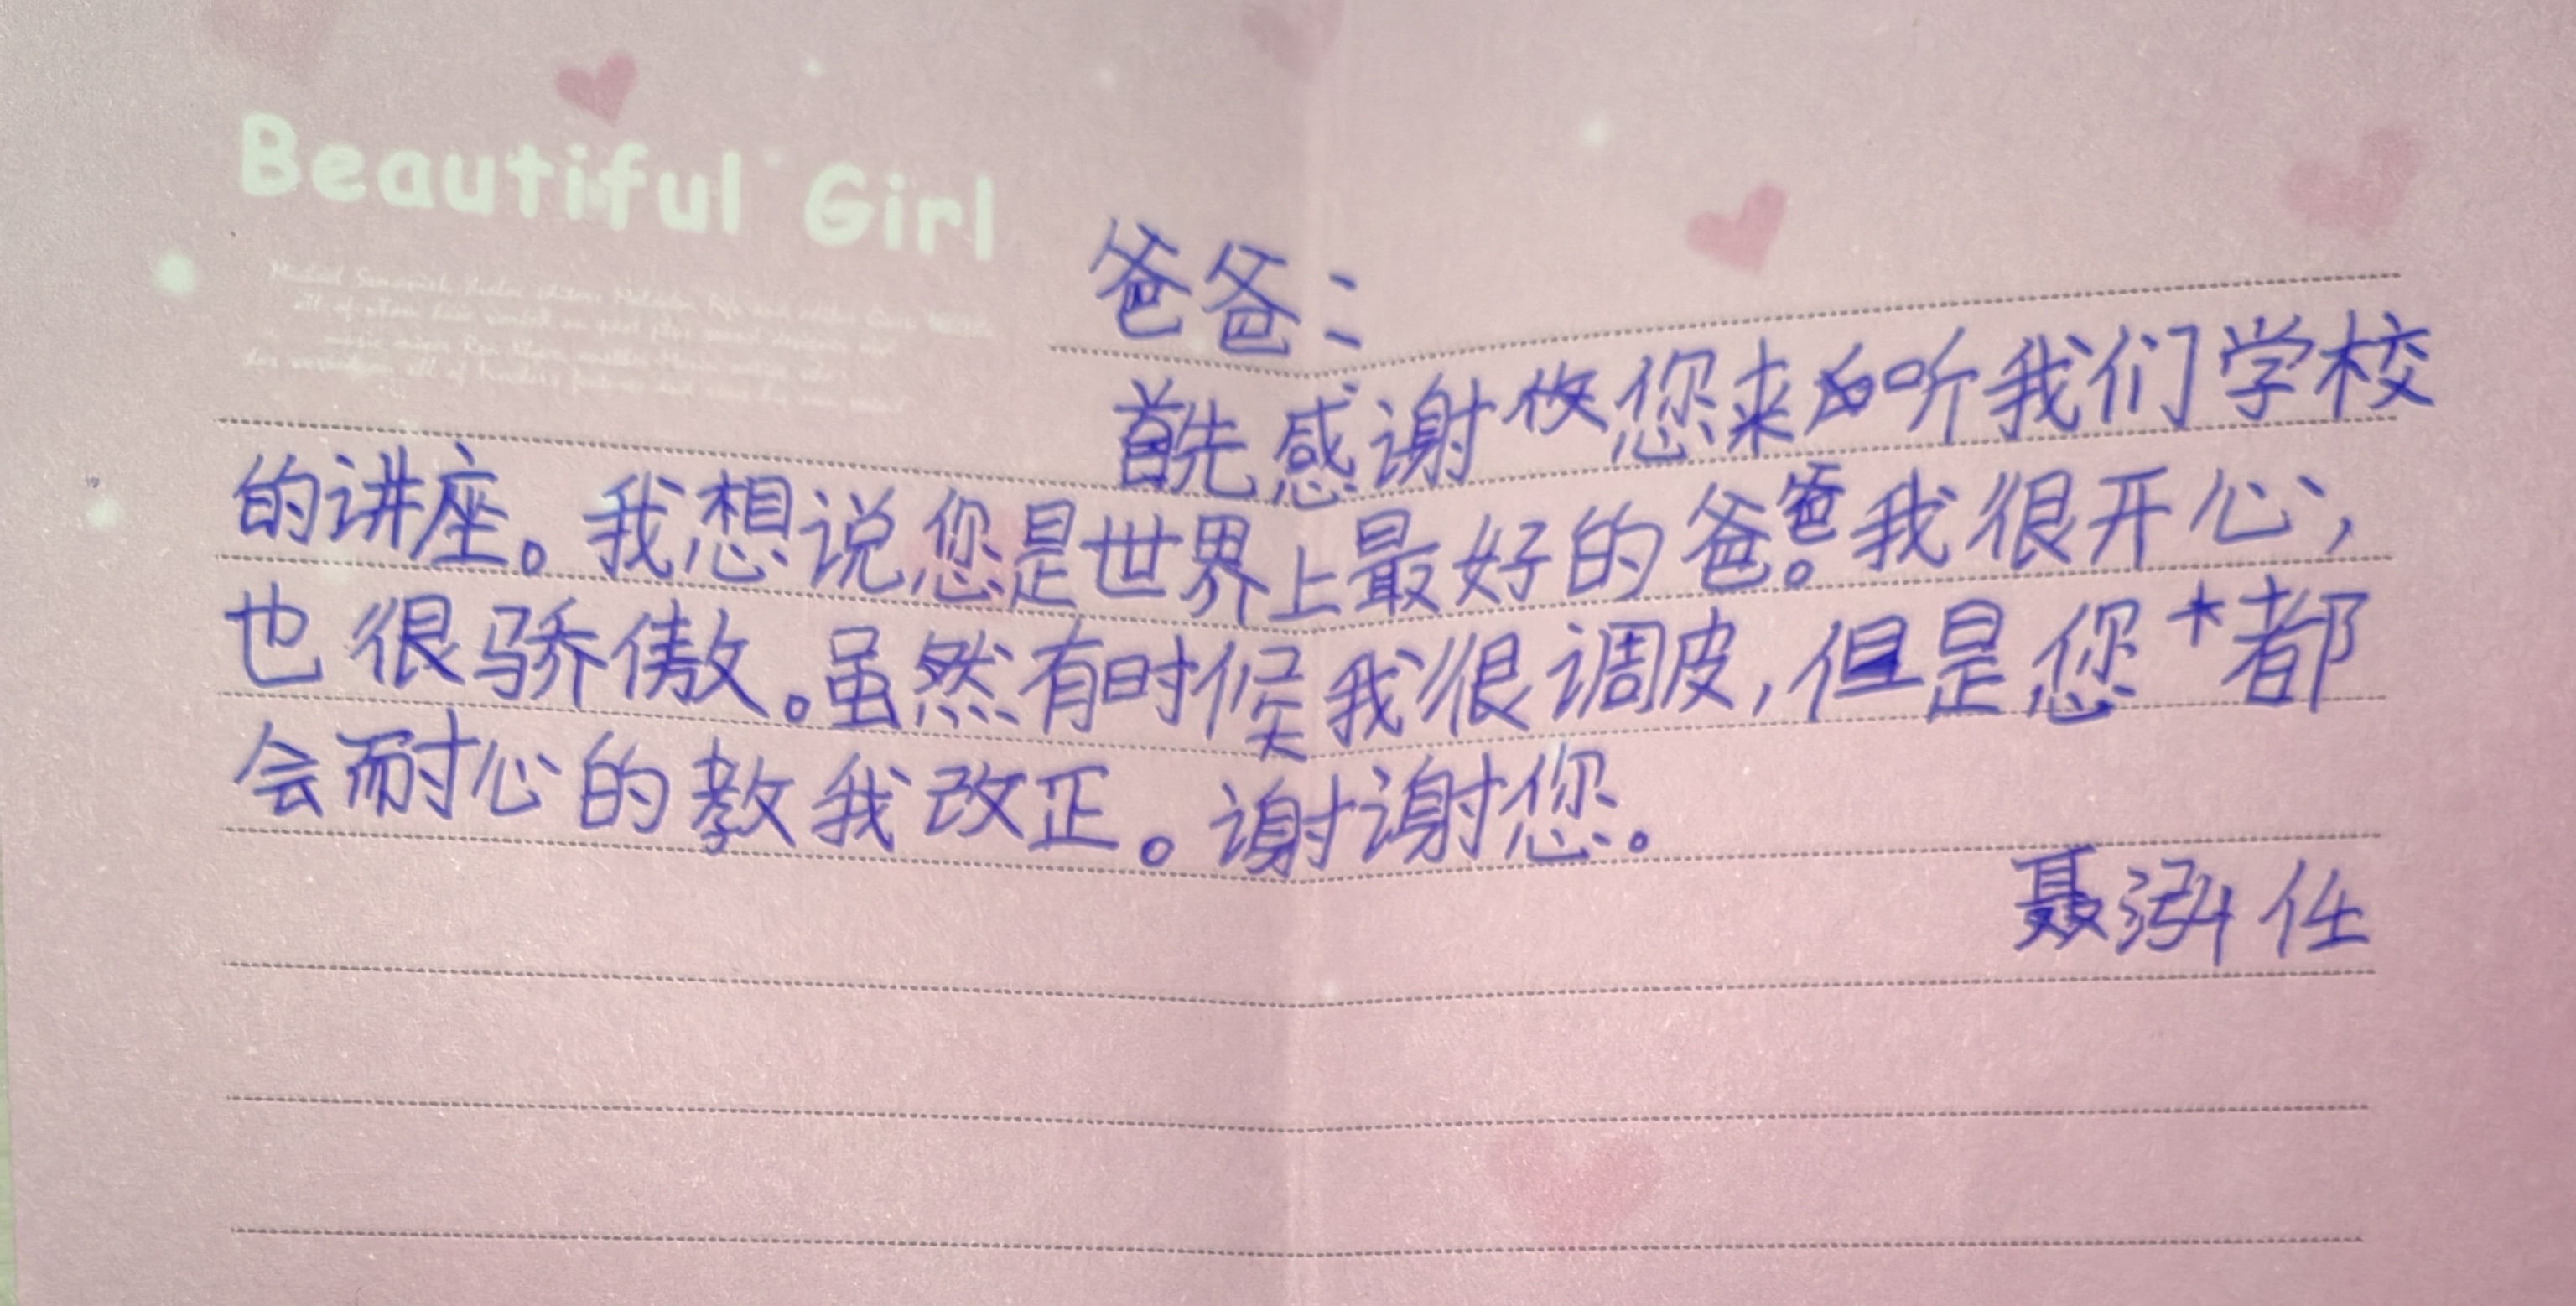 Beautiful Girl
爸爸：
首先感谢您来听我们学校
的讲座。我想说您是世界上最好的爸爸。我很开心，
也很骄傲。虽然有时候我很调皮，但是您都
会耐心的教我改正。谢谢您。
聂泓任